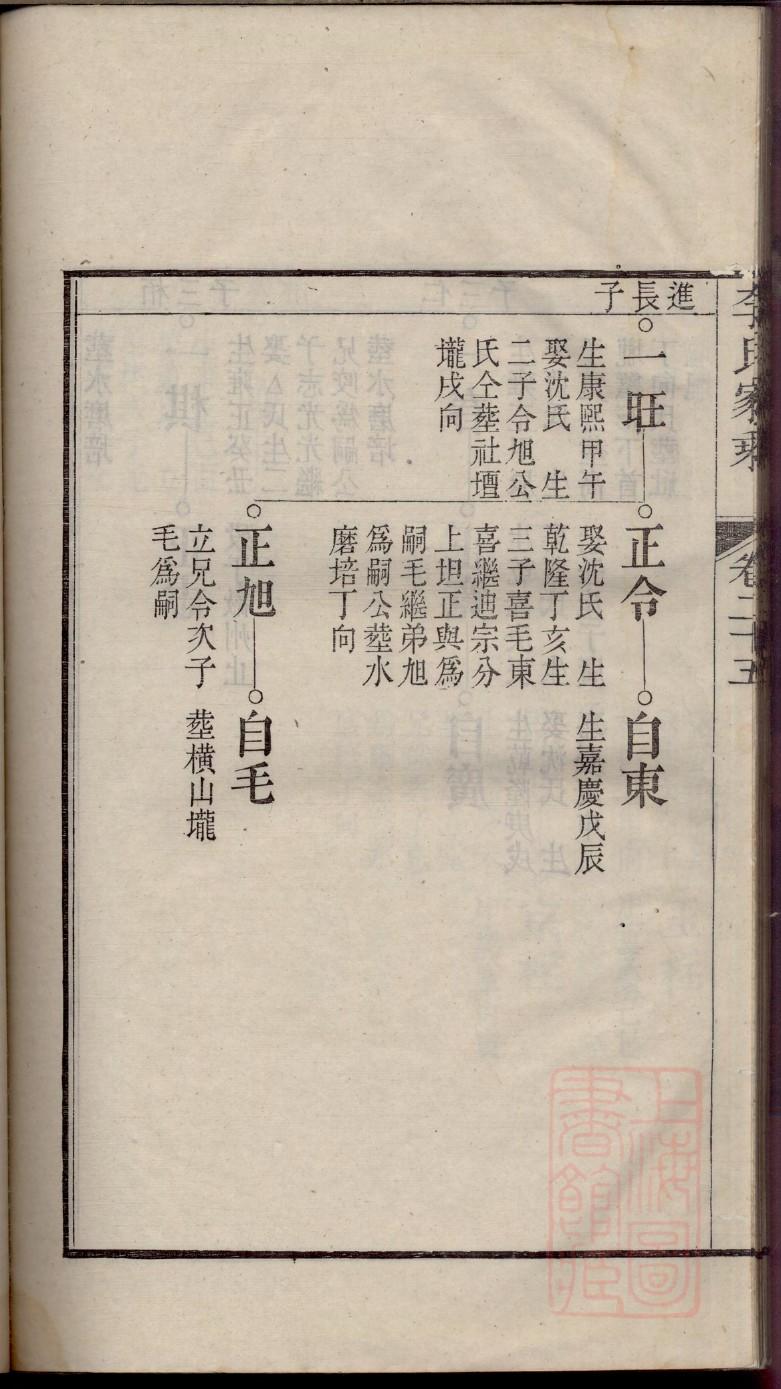 李氏家乘
卷二十五
進長子
一旺
生康熙甲午
娶沈氏 生
二子令旭公
氏仝塟社壇
壠戌向
正令
娶沈氏 生
乾隆丁亥生
三子喜毛東
喜繼迪宗分
上坦正與爲
嗣毛繼弟旭
爲嗣公塟水
磨培丁向
自東
生嘉慶戊辰
正旭
立兄令次子
毛爲嗣
自毛
塟橫山壠
上海圖
書館藏